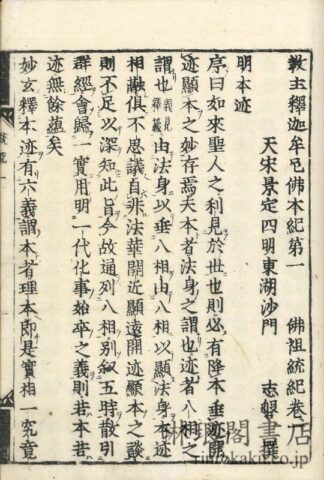 教主釋迦牟尼佛本紀第一 佛祖統紀卷一
天宋景定四明東湖沙門 志磐 撰
明本迹
序曰如來聖人之利見於世也則必有降本垂迹開
迹顯本之妙存焉夫本者法身之謂也迹者八相之
謂也 由法身以垂八相由八相以顯法身本迹
相融俱不思議自非法華開近顯遠開迹顯本之談
則不足以深知此旨今故通列八相別叙五時散引
群經會歸一實用明一代化事始卒之義則若本若
迹無餘蘊矣
妙玄釋本迹有六義謂本者理本即是實相一究竟
琳琅閣書店
rinrokaku.co.jp